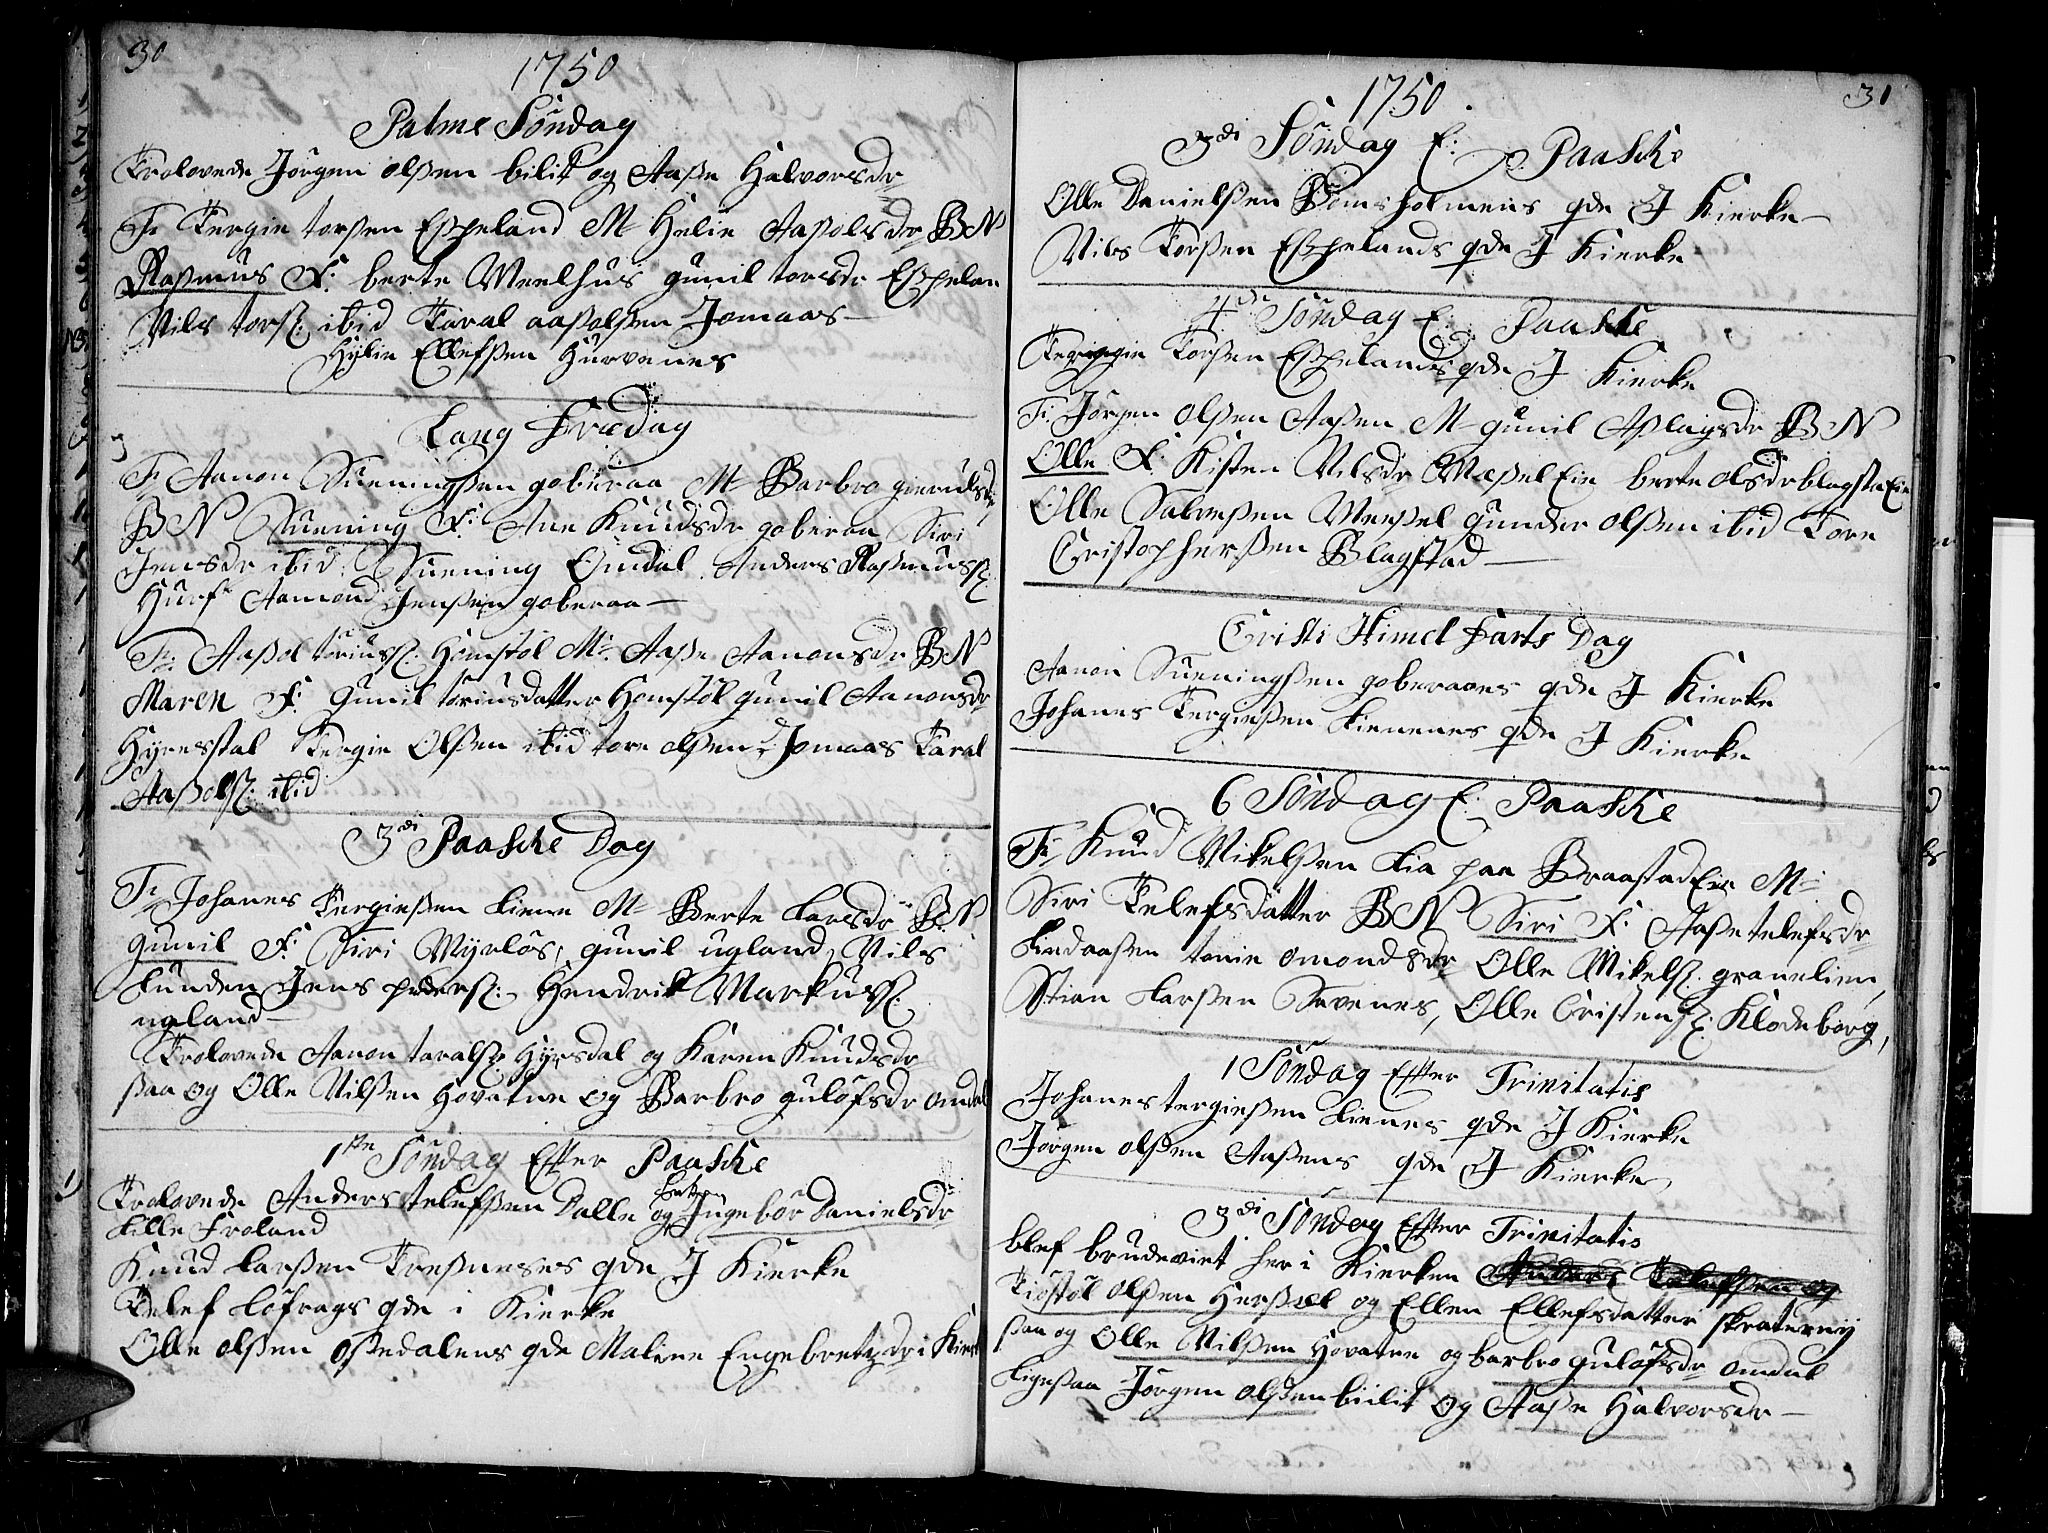 30
1750
Palme Söndag
Trolovede Jörgen olßen bilit og Aaße Halvorsdr
Fr Tergie torßen Eßpeland M Helie Aaßolsdr BN
Raßmus F: berte Weelhus gunil torsdr Eßpelan
Nils torß: ibid Taral aaßolßen Jomaas
Hylie Ellefsßen Hurvenes
Lang Fredag
Fr Aanon Sueningßen goburaa M Barbro gieruls
BN Suening F: Ane Knudsdr goberaa Siri
Jensdr ibid, Suening Omdal Anders Raßmusß:
Hurf Aamond Jenßen goberaa
Fr Aaßol toriusß: Homstöl M Aaße Aanonsdr BN
Maren F: Gunil toriusdatter Homstöl gunil Aanonsdr
Hyresstal Tergie Olßen ibid tore olßen Jomaas Taral
Aaßolß: ibid
3di Paaske Dag
Fr Johanes Tergießen Liene M Berte Larsdr BN
gunil F: Siri Myrlös, gunil ugland, Nils
Lunden Jens pederß: Hendrik Markusß:
ugland
Trolovede Aanon taralß: Hyrsdal og Karen Knudsdr
ßaa og Olle Nilßen Hovatne og Barbro gulofsdr omdal
1ste Söndag Efter Paaske
Trolovede Anders telefsßen Dalle og Ingebör Danielsdr
Lille Froland
Knud Larßen Treßneses gde J Kierke
Telef Löfrags gde i Kierke
Olle olßen oßedalens gde Malene Engebretzdr i Kierk
31
1750
3di Söndag E: Paaske
Olle Danielßen Bomsholmens gde J Kierke
Nils Torßen Eßpelands gde J Kierke
4de Söndag E: Paaske
Tergie Torßen Eßpelands gde J Kierke
Fr Jörgen Olßen Aaßen M gunil Aßlagsdr BN
Olle F: Kisten Nilsdr Meßel Eie berte olsdr blagsta Eie
Olle Salveßen Meeßel gunder olßen ibid Tore
Cristopherßen Blagstad
Cristi Himel Farts Dag
Aanon Sueningßen goberaaes gde J Kierke
Johanes Tergießen Lienenes gde J Kierke
6 Söndag E: Paaske
Fr Knud Mikelßen Lia paa Braastad Eie M
Siri Telefsdatter BN Siri F: Aaße telefsdr
Lindaaßen tonie omondsdr Olle Mikelß: granelien,
Stian Larßen Sævenes, Olle Cristenß: Klodeborg,
1 Söndag Efter Trinitatis
Johanes tergießen Lienes gde J Kierke
Jörgen olßen Aaßens gde J Kierke
3di Söndag Efter Trinitatis
blef brudeviet her i Kierken Anders Telefsßen og
Tiöstöl olßen Herßel og Ellen Ellefsdatter skraterey
ßaa og Olle Nilßen Hovatne og barbro gulofsdr omdal
Ligeßaa Jörgen olßen bielit og Aaße Halvorsdr